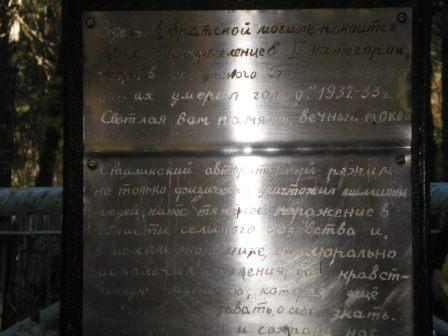 Здесь в братской могиле покоится
прах спецпереселенцев II категории,
жертв
их умерил голод." 1932-33 г.
Светлая вам память, вечный покой
Сталинский авторитарный режим
не только физически уничтожил миллионы
людей, нанёс тяжкое поражение в
области сельского хозяйства и,
в целом экономике, он морально
искалечил поколения, дал нравст-
венную которая ещё
о себе знать.
и сохрани нас